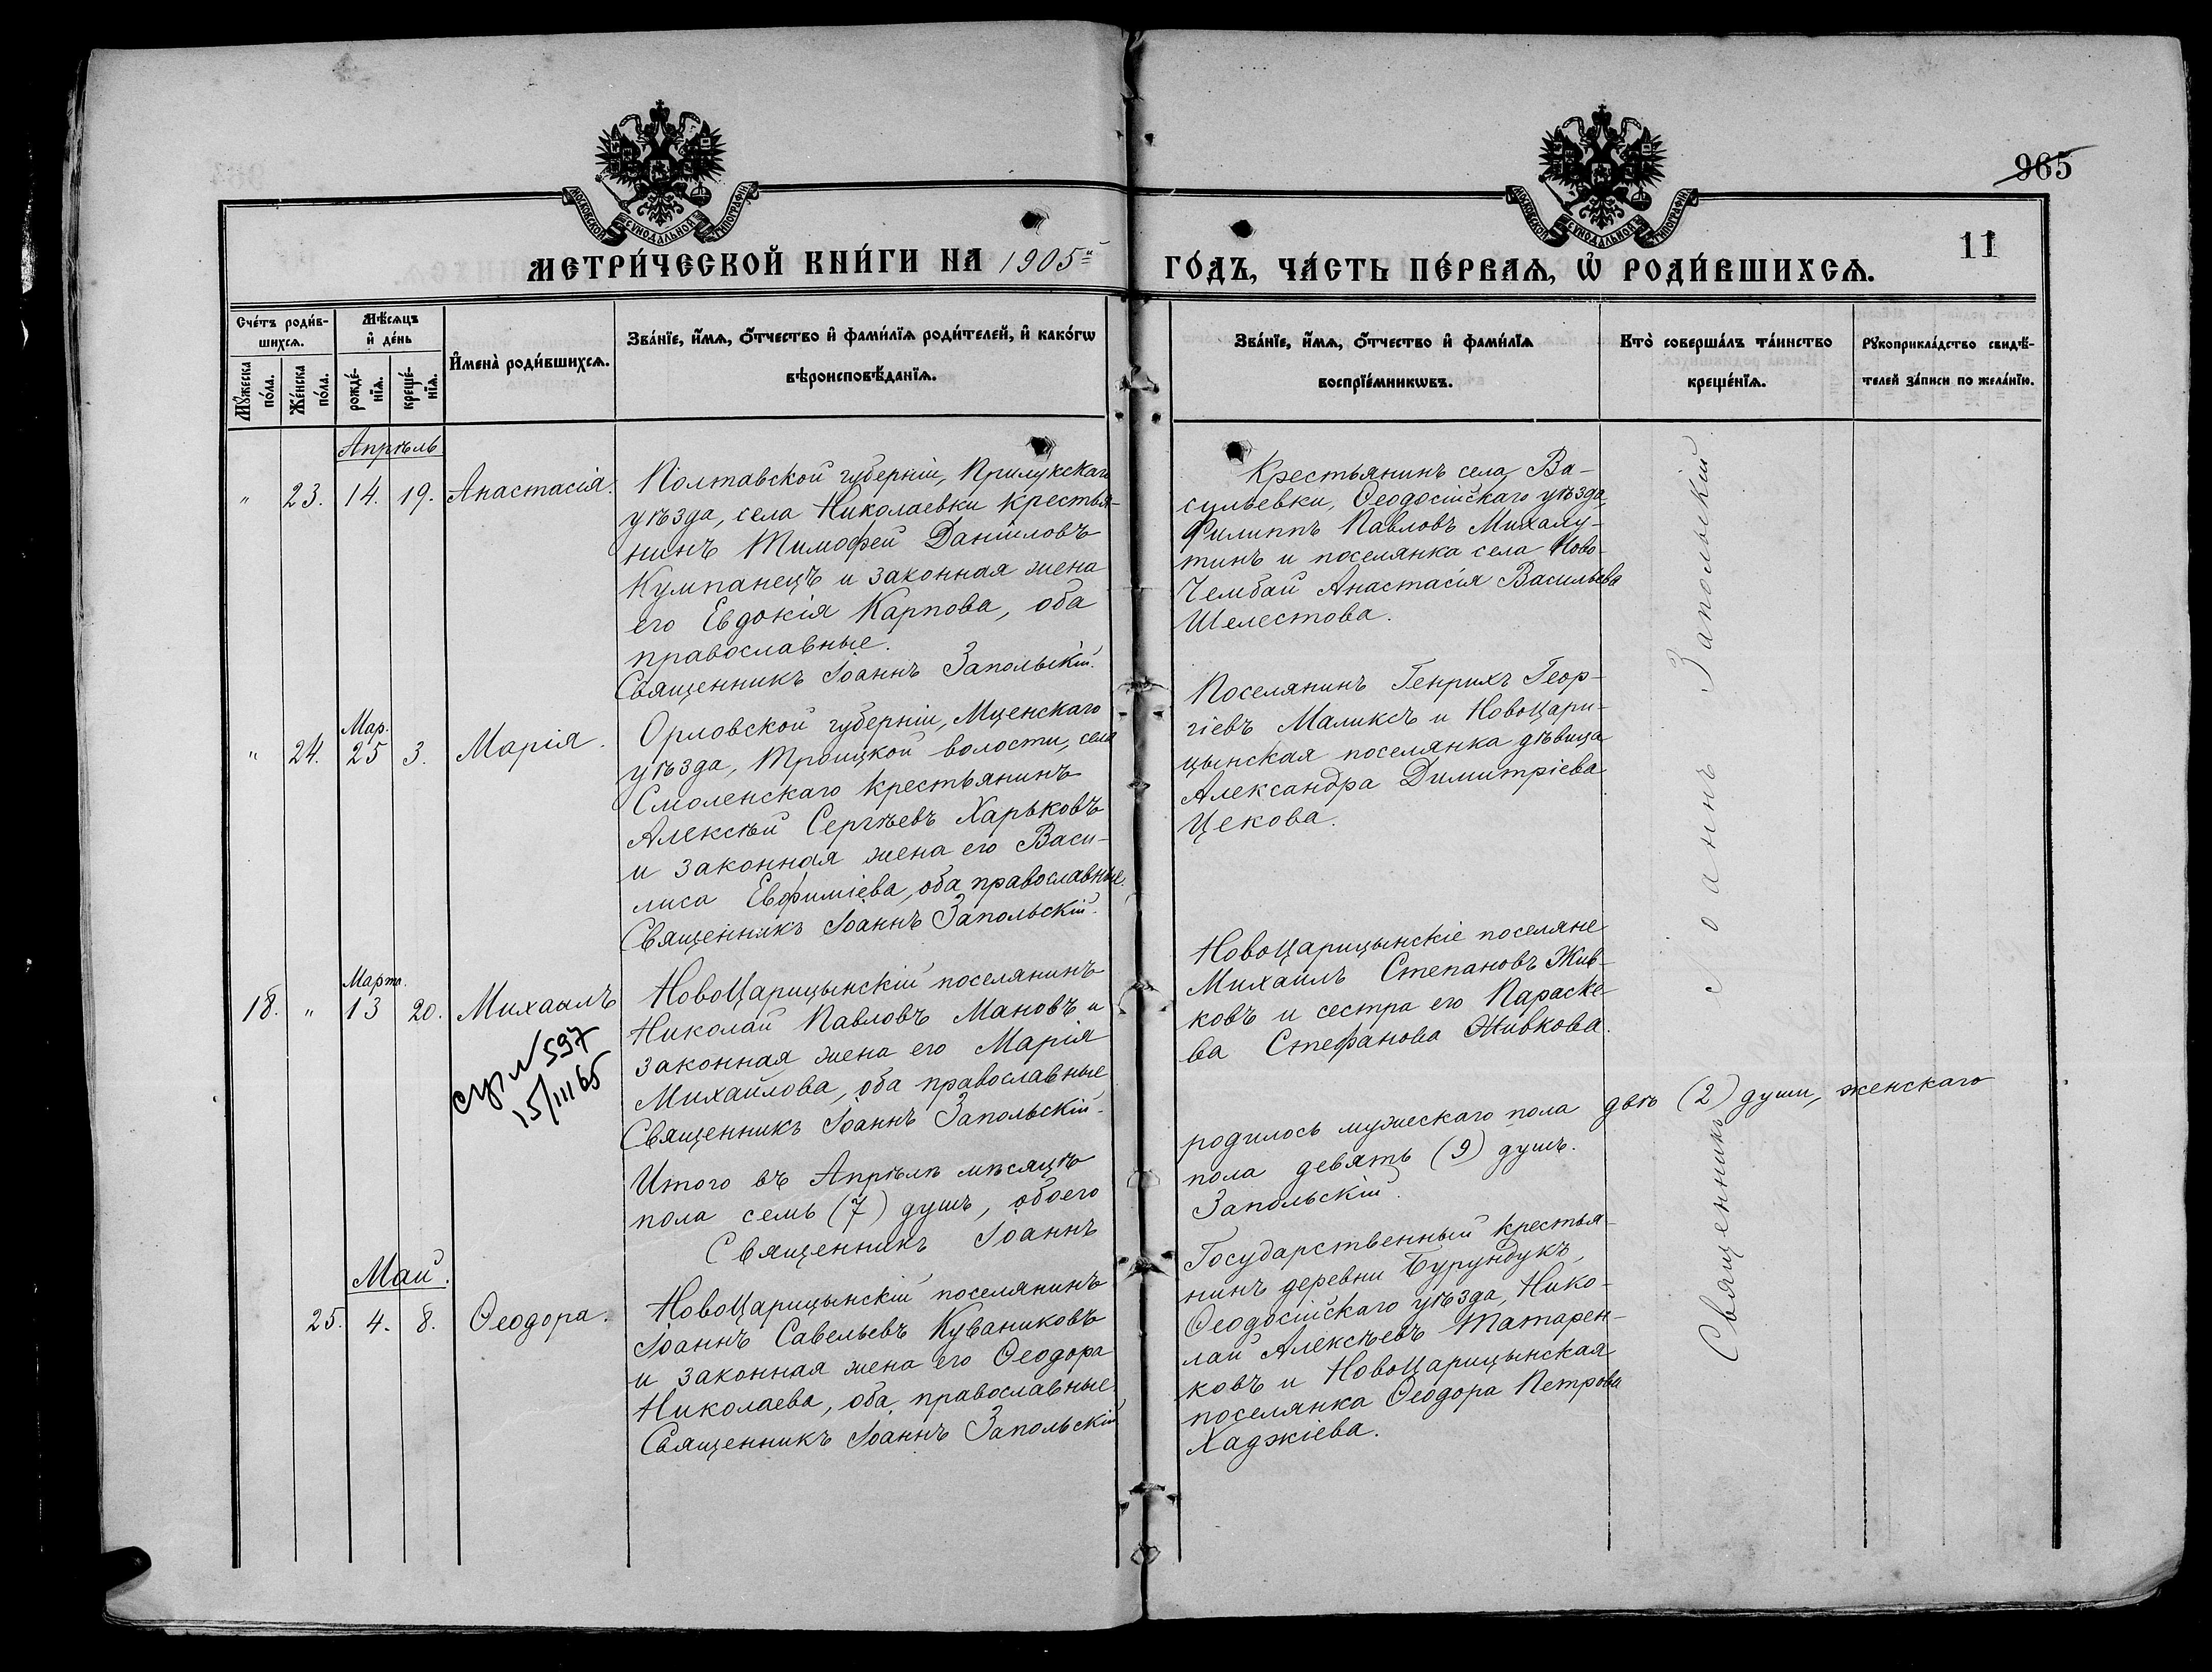 965
МОСКОВСКОЙ СУНОДАЛЬНОЙ ТИПОГРАФІИ
МОСКОВСКОЙ СУНОДАЛЬНОЙ ТИПОГРАФІИ
11
МЕТРИ́ЧЕСКОЙ КНИ́ГИ НА 1905й
ГО́ДЪ, ЧА́СТЬ ПЕ́РВАѦ, Ѡ҆ РОДИ́ВШИХСѦ.
Сче́тъ роди́в-
шихсѧ.
Мꙋ́жеска
по́ла.
Же́нска
по́ла.
Мѣ́сѧцъ
и҆ де́нь
рожде́-
нїѧ.
креще́-
нїѧ.
И҆мена̀ роди́вшихсѧ.
Зва́нїе, и҆́мѧ, ѻ҆́тчество и҆ фами́лїѧ роди́телей, и҆ како́гѡ
вѣроисповѣ́данїѧ.
Зва́нїе, и҆́мѧ, ѻ҆́тчество и҆ фами́лїѧ
воспрїе́мникѡвъ.
Кто̀ соверша́лъ та́инство
креще́нїѧ.
Рꙋкоприкла́дство свидѣ́-
телей за́писи по жела́нїю.
Апрѣль
" 23. 14. 19. Анастасія.
Полтавской губерніи, Прилукскаго
уѣзда, села Николаевки крестья-
нинъ Тимофей Даніиловъ
Кумпанецъ и законная жена
его Евдокія Карпова, оба
православные.
Священникъ Іоаннъ Запольскій.
Крестьянинъ села Ва-
сильевки, Ѳеодосійскаго уѣзда,
Филиппъ Павловъ Михалу-
тинъ и поселянка села Ново-
Чембай Анастасія Васильева
Шелестова.
Мар.
" 24. 25 3. Марія.
Орловской губерніи, Мценскаго
уѣзда, Троицкой волости, села
Смоленскаго крестьянинъ
Алексѣй Сергѣевъ Харьковъ
и законная жена его Васи-
лиса Евфиміева, оба православные.
Священникъ Іоаннъ Запольскій.
Поселянинъ Генрихъ Геор-
гіевъ Маликсъ и НовоЦари-
цынская поселянка дѣвица
Александра Димитріева
Цекова.
Марта.
18. " 13 20. Михаилъ
НовоЦарицынскій поселянинъ
Николай Павловъ Мановъ и
законная жена его Марія
Михайлова, оба православные
Священникъ Іоаннъ Запольскій.
НовоЦарицынскіе поселяне
Михаилъ Степановъ Жив-
ковъ и сестра его Параске-
ва Стефанова Живкова.
№ 597
15/III 65
Итого въ Апрѣлѣ мѣсяцѣ
родилось мужескаго пола двѣ (2) души, женскаго
пола семь (7) душъ, обоего
пола девять (9) душъ.
Священникъ Іоаннъ
Запольскій.
Май.
25. 4. 8. Ѳеодора.
НовоЦарицынскій поселянинъ
Іоаннъ Савельевъ Куваниковъ
и законная жена его Ѳеодора
Николаева, оба православные.
Священникъ Іоаннъ Запольскій
Государственный крестья-
нинъ деревни Бурундукъ,
Ѳеодосійскаго уѣзда, Нико-
лай Алексѣевъ Татарен-
ковъ и НовоЦарицынская
поселянка Ѳеодора Петрова
Хаджіева.
Священникъ Іоаннъ Запольскій